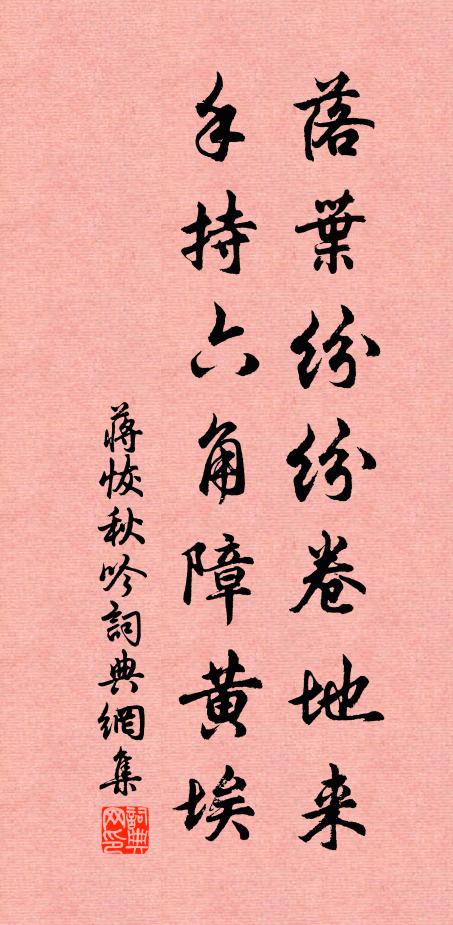 落葉紛紛卷地来
手持六角障黄埃
蒋恢秋吟詞典網集
詞典网印